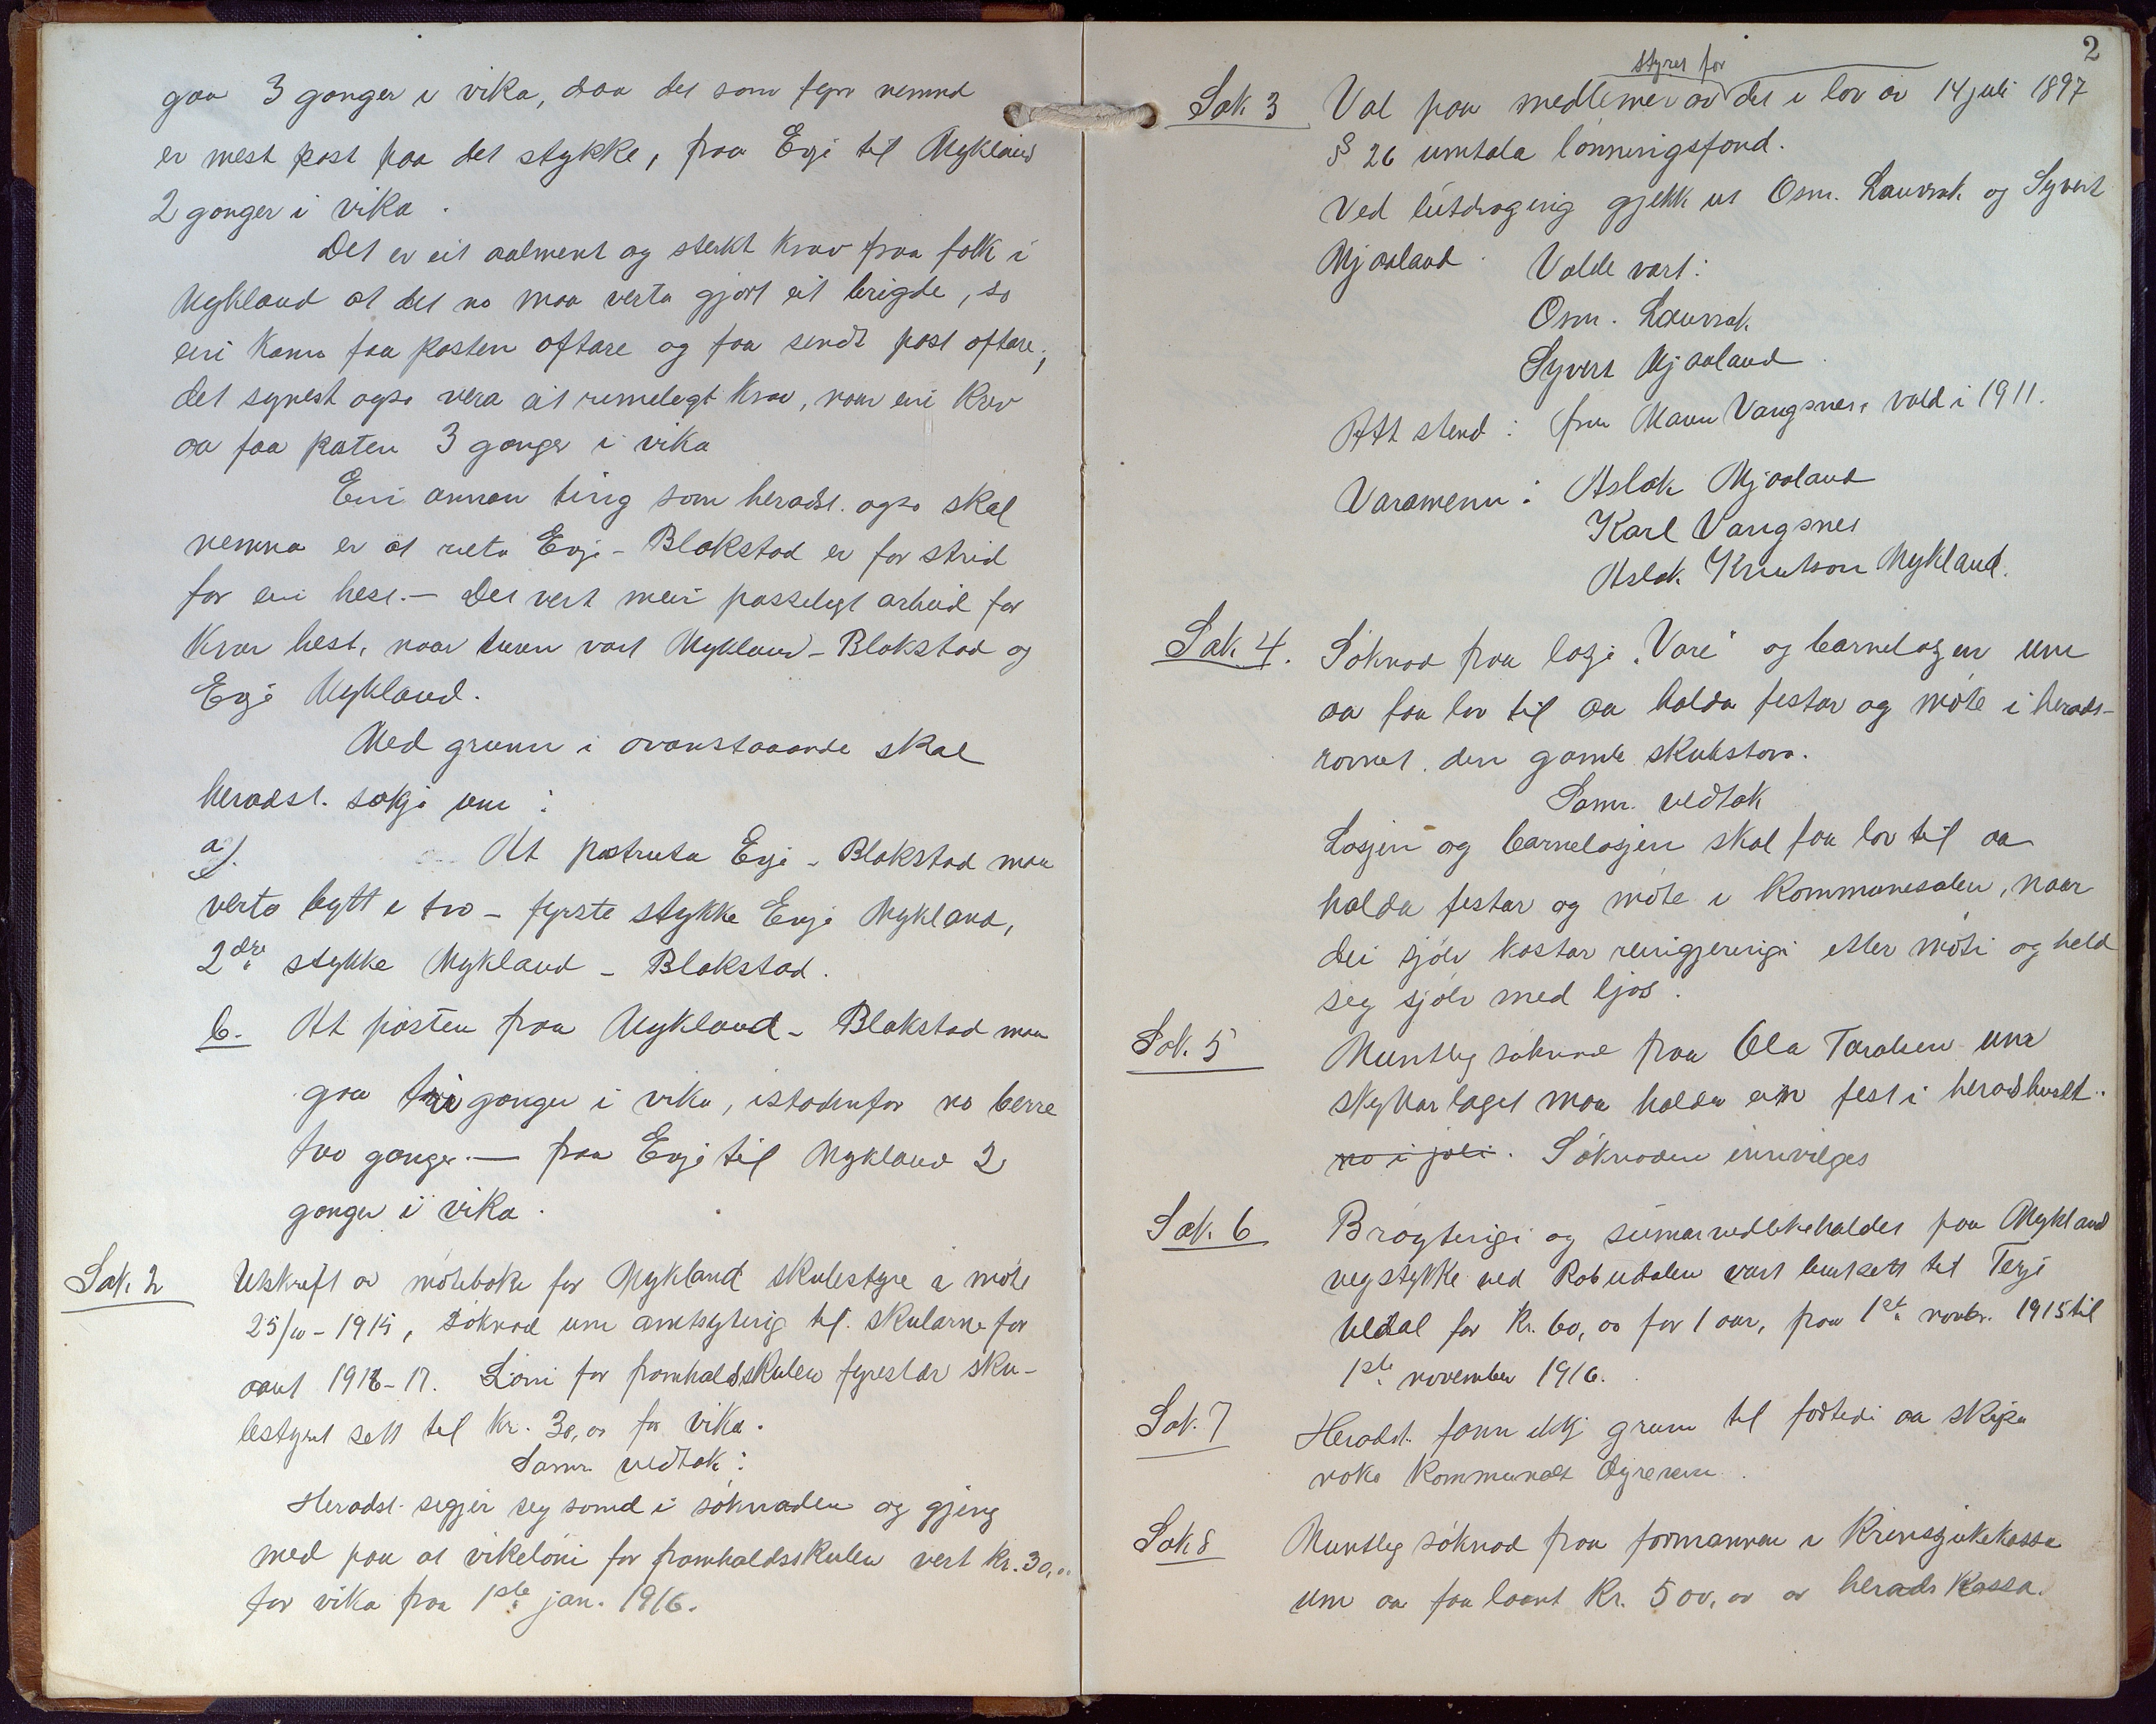 gaa 3 gonger i vika, daa det som fyrr nemnd
er mest post paa det stykke, fraa Evje til Mykland
2 gonger i vika.
Det er eit aalment og sterkt krav fraa folk i
Mykland at det no maa verta gjort eit brigde, so
ein kann faa posten oftare og faa sendt post oftare;
det synest ogso vera eit rimelegt krav, naar ein krev
aa faa posten 3 gonger i vika
Ein annan ting som heradst. ogso skal
nemna er at ruta Evje - Blakstad er for strid
for ein hest. - Det vert meir passelegt arbeid for
kvar hest, naar turen vart Mykland - Blakstad og
Evje Mykland.
Med grunn i ovanstaaande skal
heradst. søkja um:
a). At postruta Evje - Blakstad maa
verta bytt i tvo - fyrste stykke Evje Mykland,
2dre stykke Mykland - Blakstad.
b. At posten fraa Mykland - Blakstad maa
gaa tri gonger i vika, istadenfor no berre
tvo gonger. — fraa Evje til Mykland 2
gonger i vika.
Sak 2 Utskrift av møteboka for Mykland skulestyre i møte
25/10 - 1915, søknad um amtsyting til skularne for
aaret 1916-17. Løni for framhaldsskulen fyreslær sku-
lestyret sett til kr. 30,00 for vika.
Samr. vedtak:
Heradst. segjer seg samd i søknaden og gjeng
med paa at vikeløni for framhaldsskulen vert kr. 30,00
for vika fraa 1ste jan. 1916.
2
styret for
Sak 3 Val paa medlemer av det i lov av 14 juli 1897
§ 26 umtala lønningsfond.
Ved lutdraging gjekk ut Osm. Lauvrak og Syvert
Mjaaland. Valde vart:
Osm. Lauvrak
Syvert Mjaaland.
Att stend: fru Maren Vangsnes, vald i 1911.
Varamenn: Aslak Mjaaland
Karl Vangsnes
Aslak Knutson Mykland.
Sak 4. Søknad fraa losje "Vare" og barnelosjen um
aa faa lov til aa halda festar og møte i herads-
romet, den gamle skulestova.
Samr. vedtak
Losjen og barnelosjen skal faa lov til aa
halda festar og møte i kommunesalen, naar
dei sjølv kostar reingjeringi etter møti og held
seg sjølv med ljos.
Sak. 5 Muntleg søknad fraa Ola Taraldsen um
skyttarlaget maa halda ein fest i heradshuset.
no i joli. Søknaden innvilges
Sak. 6 Brøytingi og sumarvedlikehaldet paa Mykland
vegstykke ved Robudalen vart burtsett til Terje
Uldal for kr. 60,00 for 1 aar, fraa 1ste novbr. 1915 til
1ste november 1916.
Sak. 7 Heradst. fann ikkj grunn til fortedi aa skipa
noko kommunalt
Sak 8 Muntleg søknad fraa formannen i Krinssjukekassa
um aa faa laant Kr. 500,00 av herads kassa.